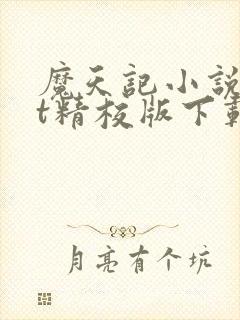 魔天記小説
t精校版下載
月亮有个坑